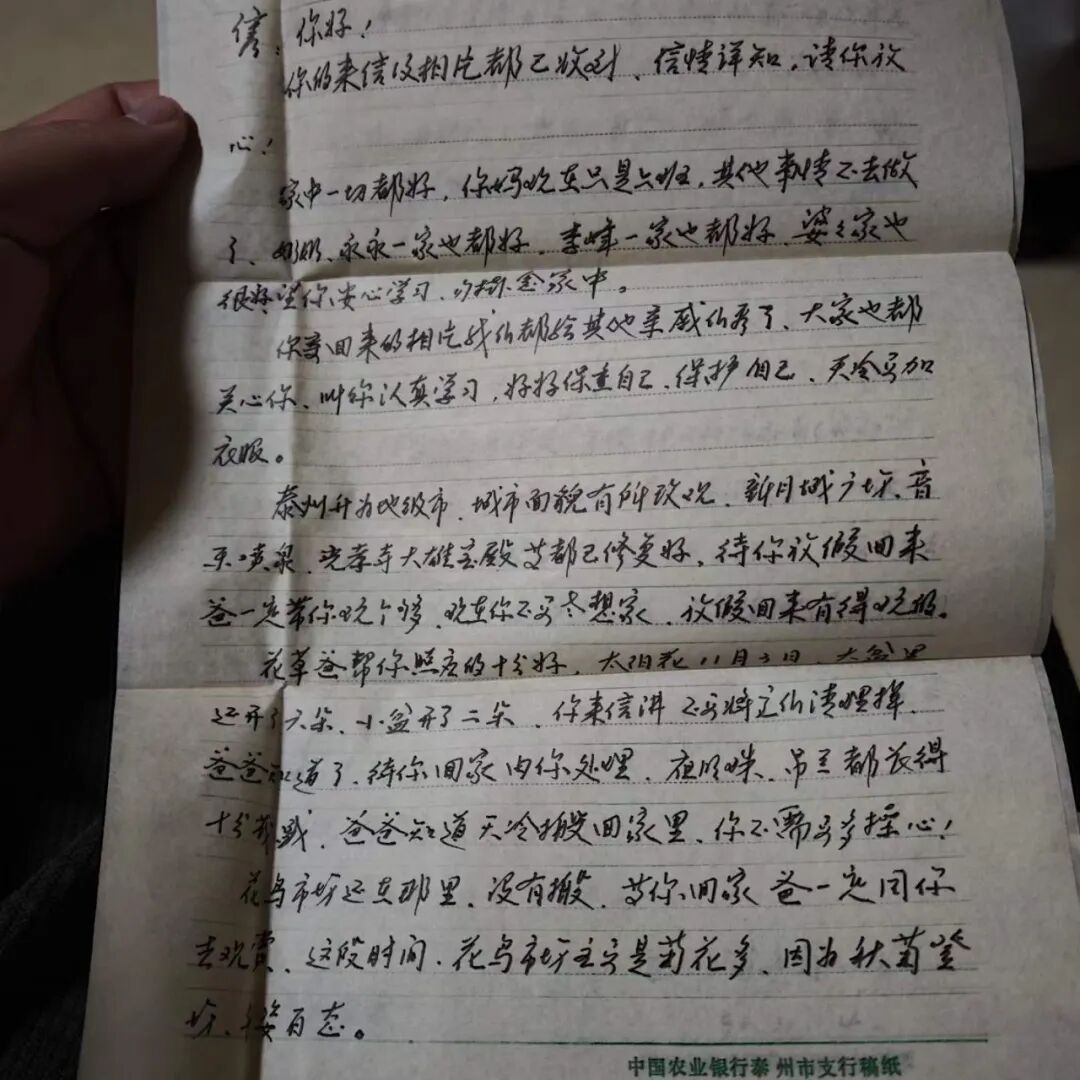 倩：你好！
你的来信及相片都已收到、信情详知，请你放
心！
家中一切都好，你妈现在只是上班，其他事情不去做
了、奶奶、永永一家也都好，李峰一家也都好、婆婆家也
很好望你安心学习、勿挂念家中。
你寄回来的相片我们都给其他亲戚们看了、大家也都
关心你、叫你认真学习，好好保重自己、保护自己、天冷多加
衣服。
泰州升为地级市、城市面貌有所改观、新月城广场、音
乐喷泉、光孝寺大雄宝殿等都已修复好，待你放假回来
爸一定带你玩个够、现在你不要太想家、放假回来有得玩极。
花草爸帮你照应的十分好，太阳花11月3日，大盆里
还开了六朵、小盆开了二朵、你来信讲不要将它们清理掉、
爸爸知道了、待你回家由你处理、夜明珠、吊兰都长得
十分茂盛、爸爸知道天冷搬回家里、你不需要多操心！
花鸟市场还在那里、没有搬、等你回家爸一定同你
去观赏、这段时间、花鸟市场主要是菊花多、因为秋菊登
场、姿百态。
中国农业银行泰州市支行稿纸